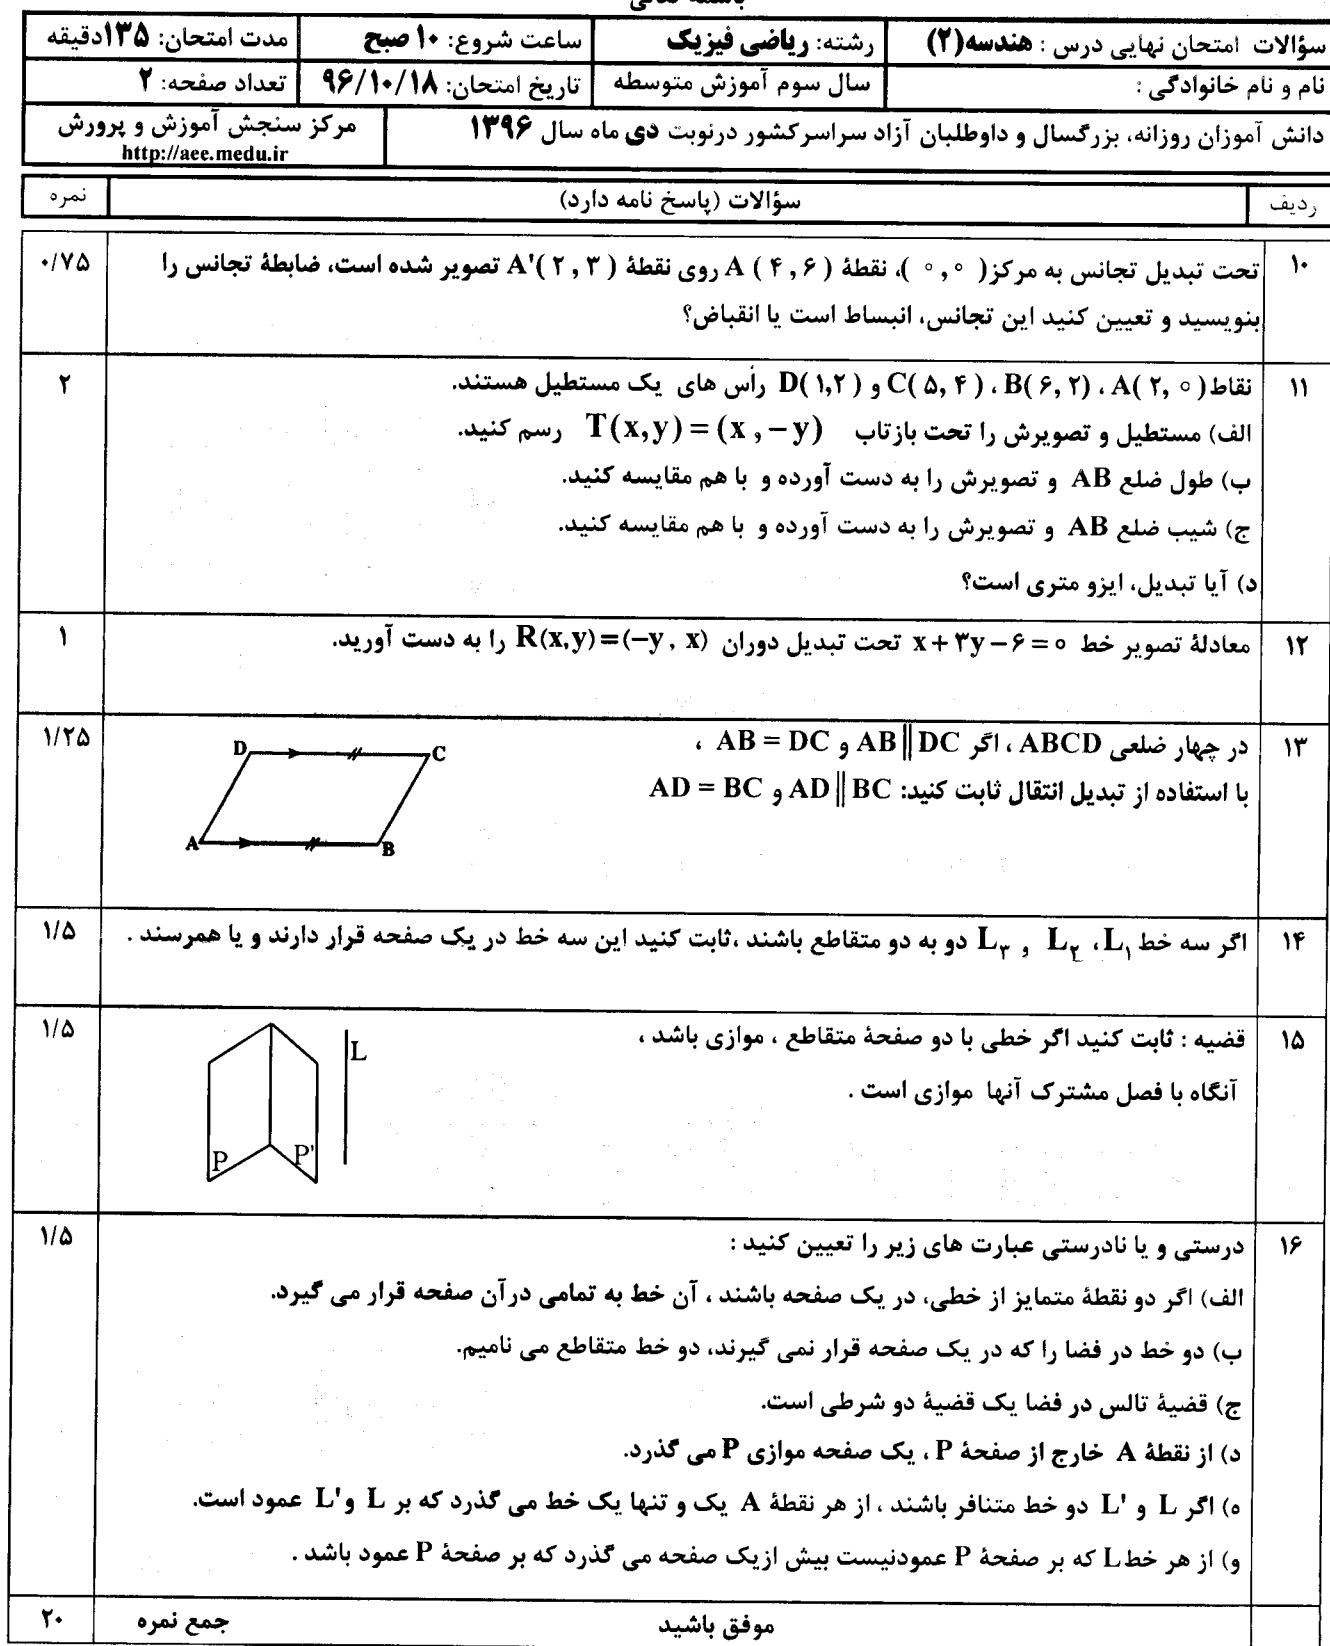 باسمه تعالی
سؤالات امتحان نهایی درس : هندسه(۲) رشته: ریاضی فیزیک ساعت شروع: ۱۰ صبح مدت امتحان: ۱۳۵دقیقه
نام و نام خانوادگی : سال سوم آموزش متوسطه تاریخ امتحان: ۹۶/۱۰/۱۸ تعداد صفحه: ۲
دانش آموزان روزانه، بزرگسال و داوطلبان آزاد سراسرکشور درنوبت دی ماه سال ۱۳۹۶ مرکز سنجش آموزش و پرورش
http://aee.medu.ir
ردیف سؤالات (پاسخ نامه دارد) نمره
۱۰ تحت تبدیل تجانس به مرکز( ۰ , ۰ )، نقطۀ A ( ۴ , ۶ ) روی نقطۀ A'( ۲ , ۳ ) تصویر شده است، ضابطۀ تجانس را ۰/۷۵
بنویسید و تعیین کنید این تجانس، انبساط است یا انقباض؟
۱۱ نقاط A( ۲, ۰ ) ، B( ۶, ۲) ، C( ۵, ۴ ) و D( ۱,۲ ) رأس های یک مستطیل هستند. ۲
الف) مستطیل و تصویرش را تحت بازتاب T(x,y) = (x , −y) رسم کنید.
ب) طول ضلع AB و تصویرش را به دست آورده و با هم مقایسه کنید.
ج) شیب ضلع AB و تصویرش را به دست آورده و با هم مقایسه کنید.
د) آیا تبدیل، ایزو متری است؟
۱۲ معادلۀ تصویر خط x + ۳y − ۶ = ۰ تحت تبدیل دوران R(x,y) = (−y , x) را به دست آورید. ۱
۱۳ در چهار ضلعی ABCD ، اگر AB || DC و AB = DC ، ۱/۲۵
با استفاده از تبدیل انتقال ثابت کنید: AD || BC و AD = BC
D C
A B
۱۴ اگر سه خط L₁، L₂ و L₃ دو به دو متقاطع باشند ،ثابت کنید این سه خط در یک صفحه قرار دارند و یا همرسند . ۱/۵
۱۵ قضیه : ثابت کنید اگر خطی با دو صفحۀ متقاطع ، موازی باشد ، ۱/۵
آنگاه با فصل مشترک آنها موازی است .
L
P P'
۱۶ درستی و یا نادرستی عبارت های زیر را تعیین کنید : ۱/۵
الف) اگر دو نقطۀ متمایز از خطی، در یک صفحه باشند ، آن خط به تمامی درآن صفحه قرار می گیرد.
ب) دو خط در فضا را که در یک صفحه قرار نمی گیرند، دو خط متقاطع می نامیم.
ج) قضیۀ تالس در فضا یک قضیۀ دو شرطی است.
د) از نقطۀ A خارج از صفحۀ P ، یک صفحه موازی P می گذرد.
ه) اگر L و L' دو خط متنافر باشند ، از هر نقطۀ A یک و تنها یک خط می گذرد که بر L و L' عمود است.
و) از هر خط L که بر صفحۀ P عمودنیست بیش ازیک صفحه می گذرد که بر صفحۀ P عمود باشد .
موفق باشید جمع نمره ۲۰